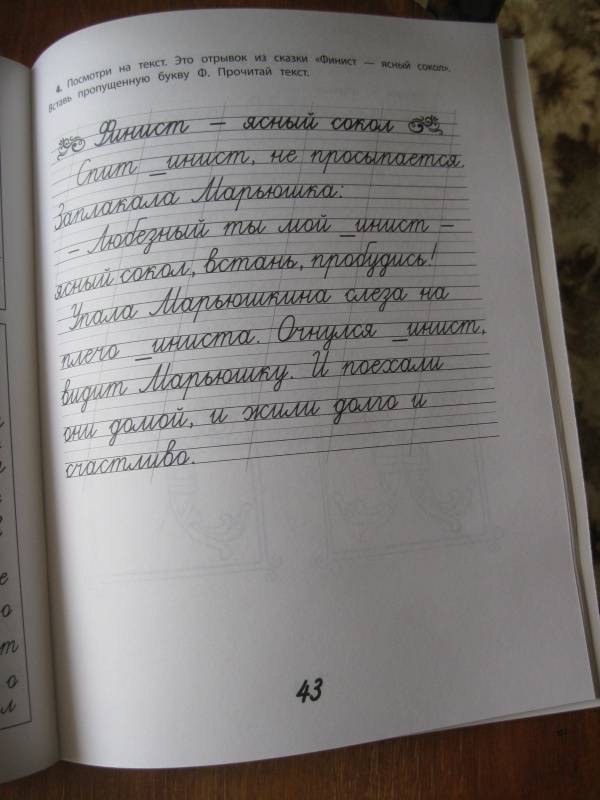 4. Посмотри на текст. Это отрывок из сказки «Финист — ясный сокол».
Вставь пропущенную букву Ф. Прочитай текст.
Финист – ясный сокол
Спит _инист, не просыпается.
Заплакала Марьюшка:
– Любезный ты мой _инист –
ясный сокол, встань, пробудись!
Упала Марьюшкина слеза на
плечо _иниста. Очнулся _инист,
видит Марьюшку. И поехали
они домой, и жили долго и
счастливо.
43
е
о
т
о
л